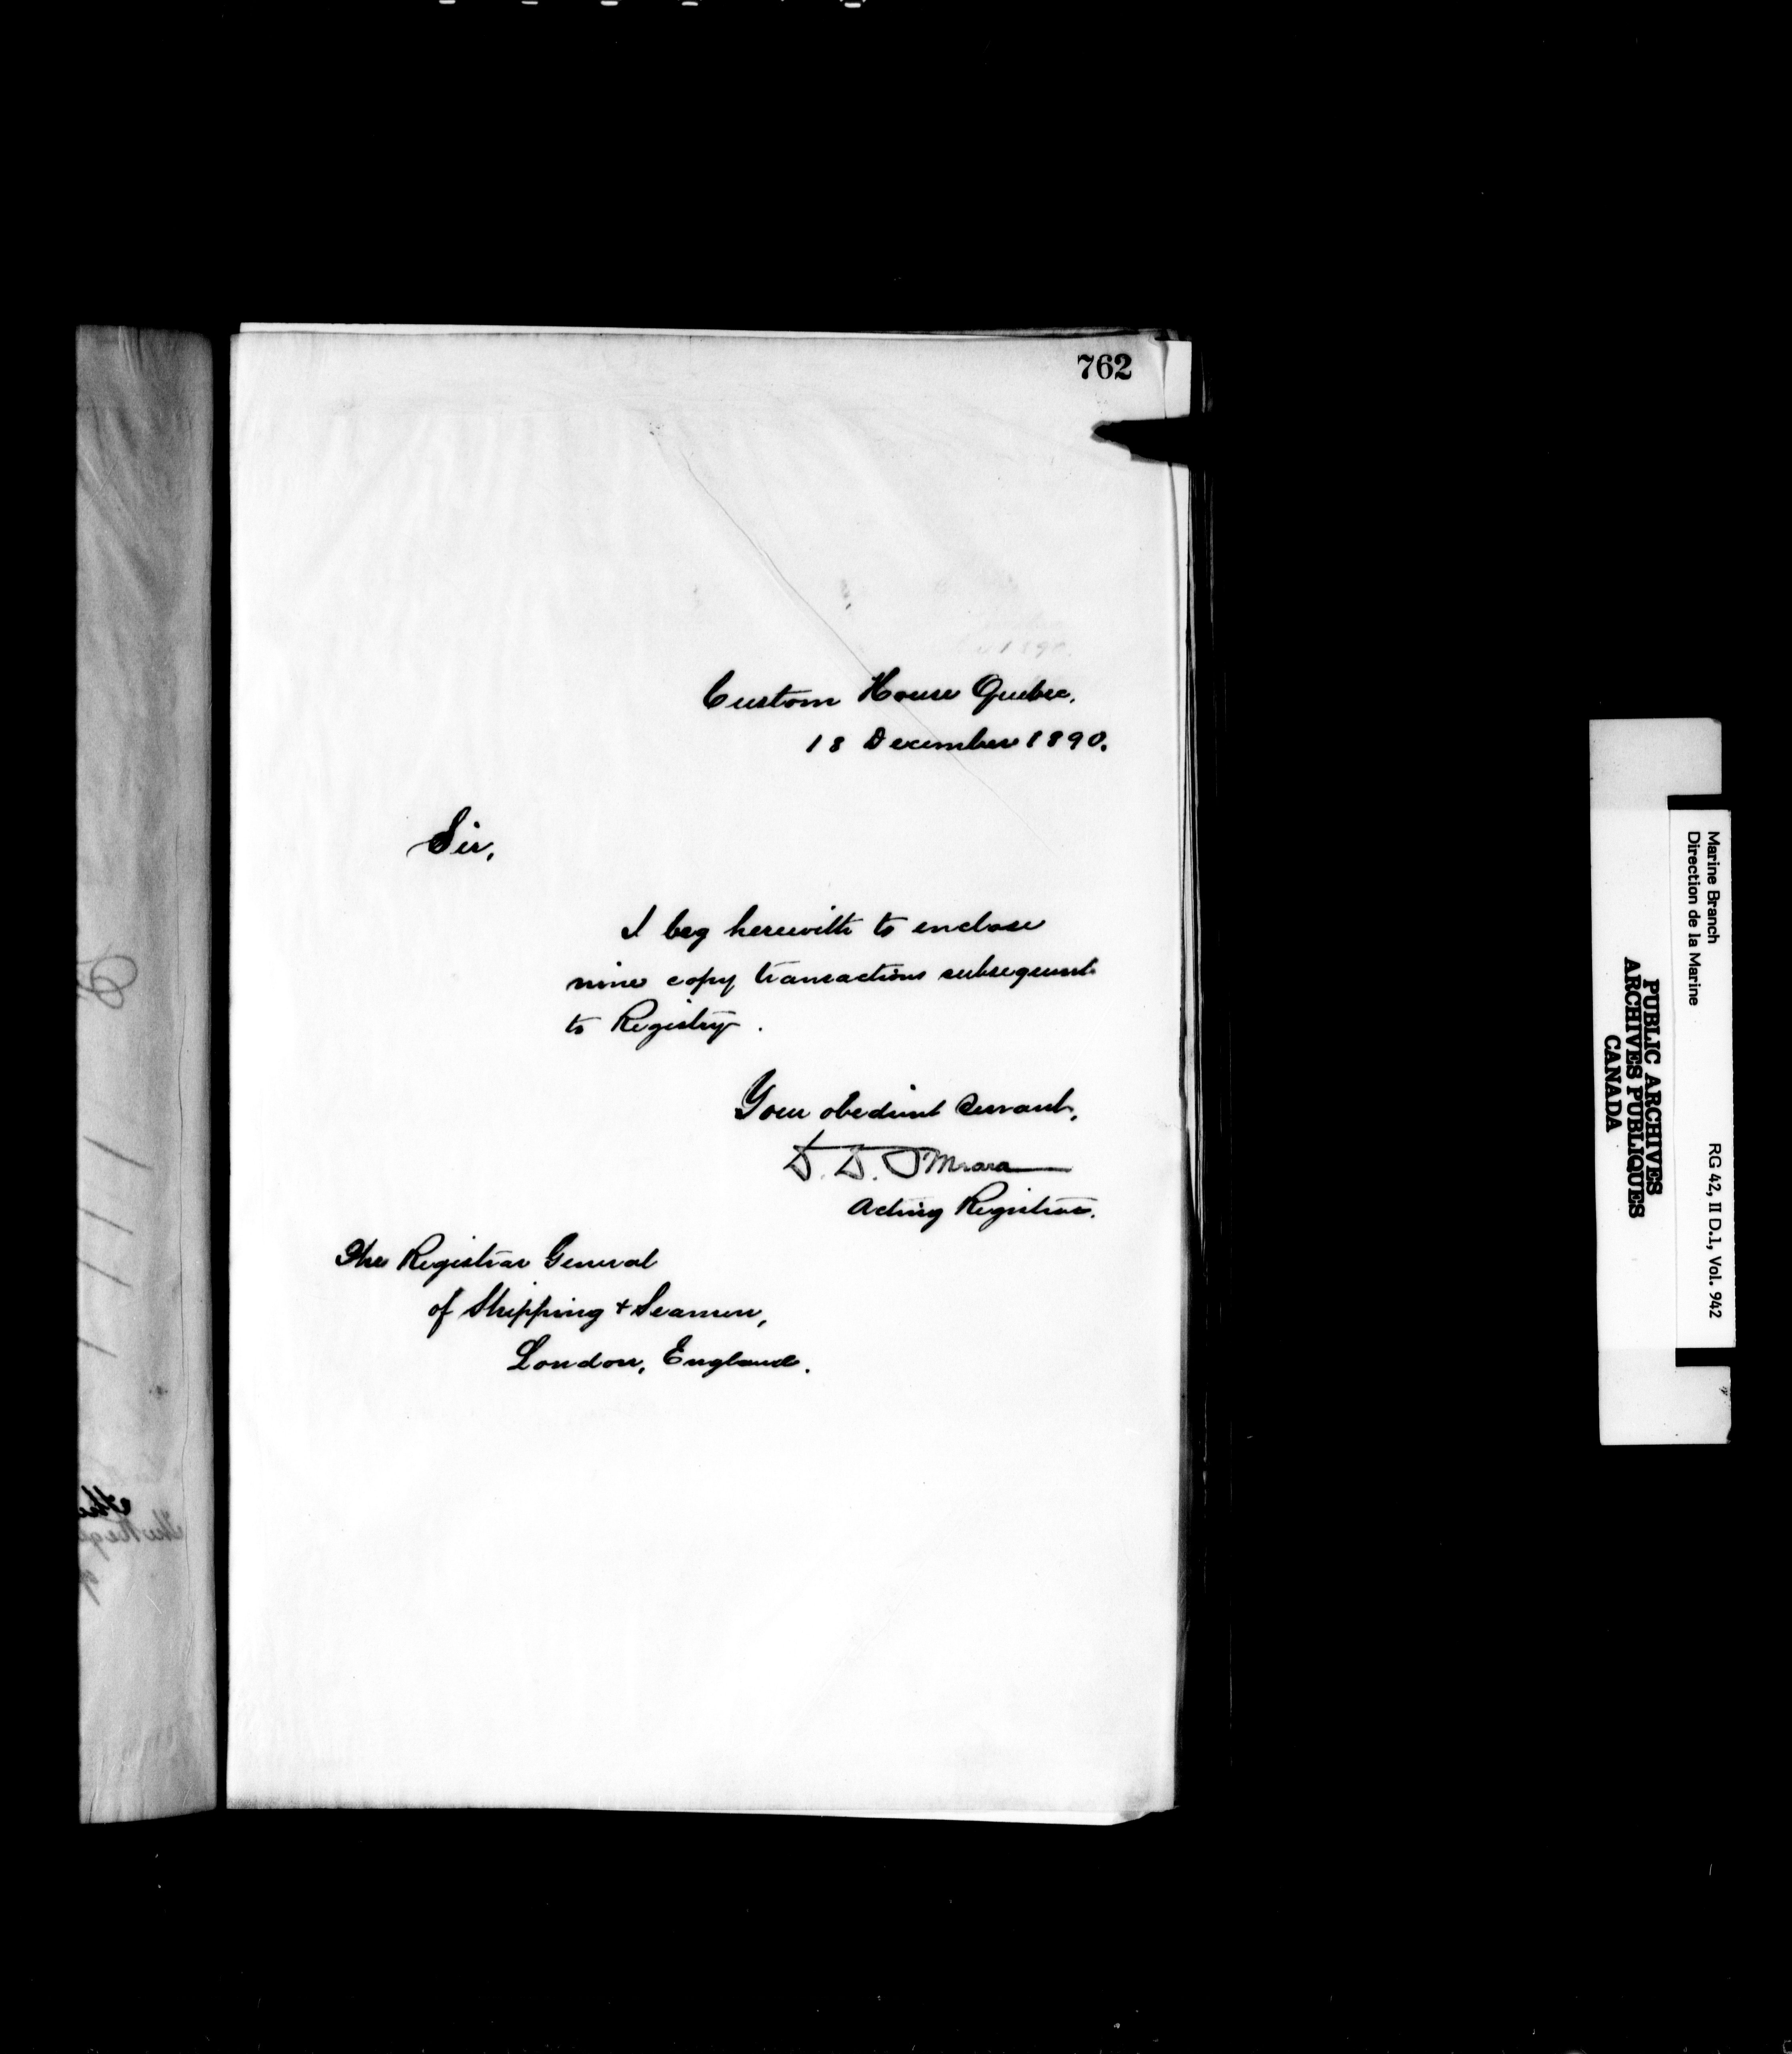 762
Custom House Quebec.
18 December 1890.
Sir,
I beg herewith to enclose
nine copy transactions subsequent
to Registry.
Your obedient Servant,
D. D. O'Meara
Acting Registrar.
The Registrar General
of Shipping + Seamen,
London, England.
Marine Branch
Direction de la Marine
RG 42, II D.1, Vol. 942
PUBLIC ARCHIVES
ARCHIVES PUBLIQUES
CANADA